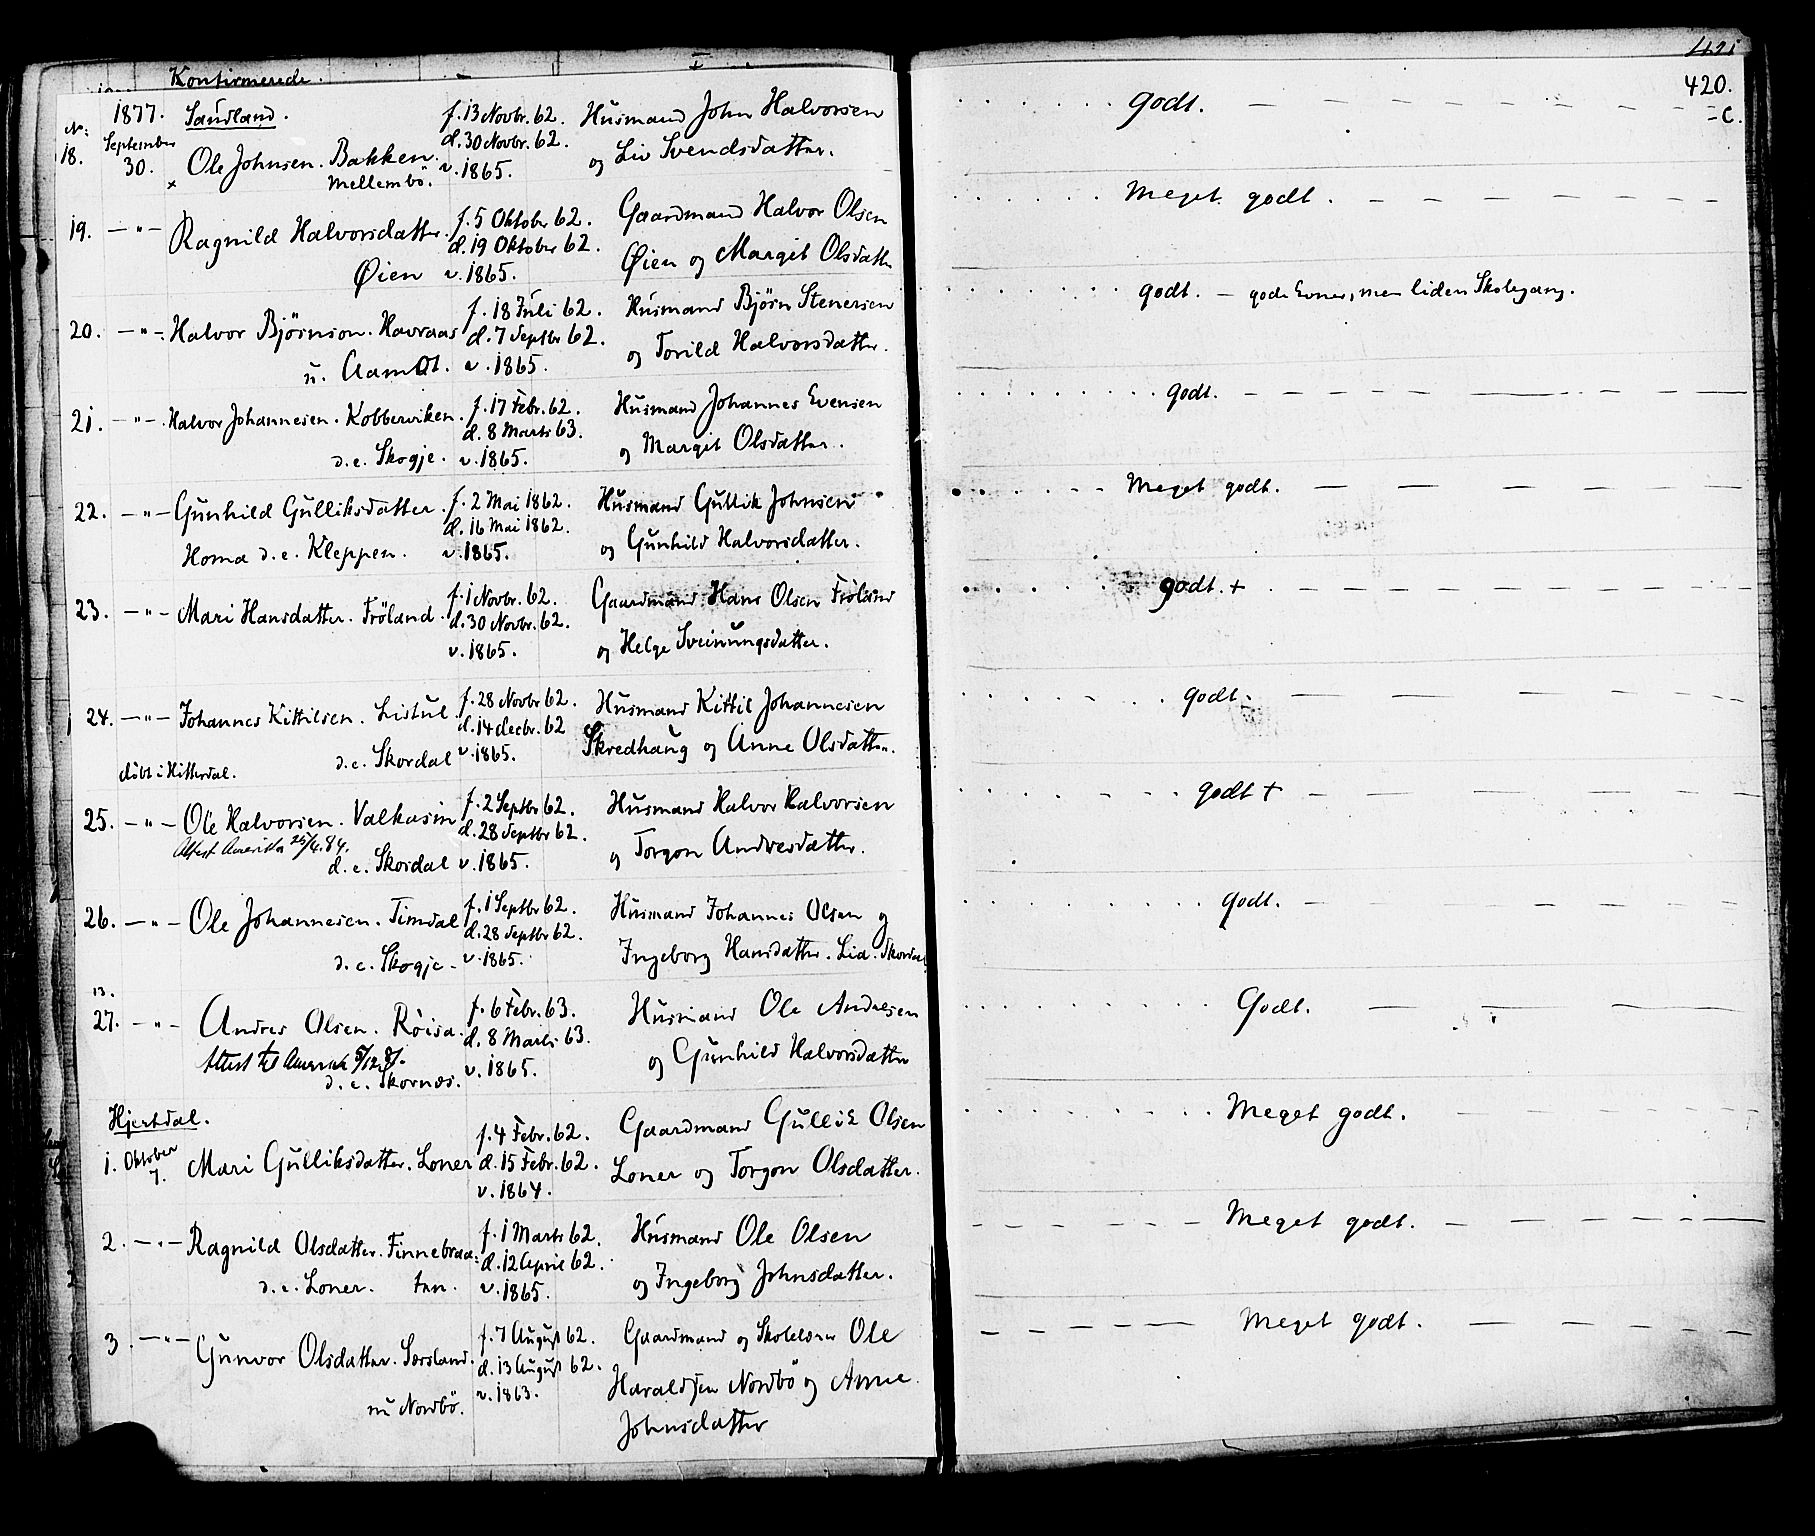 Konfirmerede.
420.
- C.
No: 1877. Saudland. f. 13 Novbr. 62. Husmand John Halvorsen godt.
18. September 30. Ole Johnsen. Bakken. d. 30 Novbr. 62. og Liv Svendsdatter.
x Mellembö. v. 1865.
19. -"- Ragnild Halvorsdatter. f. 5 Oktober 62. Gaardmand Halvor Olsen Meget godt.
d. 19 Oktober 62. Øien og Margit Olsdattr
Øien v. 1865.
20. -"- Halvor Björnson. Havraas f. 18 Juli 62. Husmand Björn Stenersen godt. - gode Evner, men liden Skolegang.
d. 7 Septbr 62. og Torild Halvorsdatter.
u. Aamot. v. 1865.
21. -"- Halvor Johannesen. Kobberviken. f. 17 Febr. 62. Husmand Johannes Evensen godt.
d. 8 Marts 63. og Margit Olsdatter.
d.e. Skogje. v. 1865.
22. -"- Gunhild Gulliksdatter. f. 2 Mai 1862. Husmand Gullik Johnsen Meget godt.
d. 16 Mai 1862. og Gunhild Halvorsdatter.
Homa d.e. Kleppen. v. 1865.
23. -"- Mari Hansdatter. Fröland. f. 1 Novbr. 62. Gaardmand Hans Olsen Fröland godt. +
d. 30 Novbr. 62. og Helge Sveinungsdatter.
v. 1865.
24. -"- Johannes Kittilsen. Listul f. 28 Novbr 62. Husmand Kittil Johannesen godt.
d. 14 decbr. 62 Skredhaug og Anne Olsdatter.
d.e. Skordal v. 1865.
döbt i Hitterdal.
25. -"- Ole Halvorsen. Valkasin f. 2 Septbr 62. Husmand Halvor Halvorsen godt +
Attest Amerika 25/4.84. d. 28 Septbr 62. og Torgon Andresdatter.
d.e. Skordal v. 1865.
26. -"- Ole Johannesen. Timdal f. 1 Septbr 62. Husmand Johannes Olsen og godt.
d. 28 Septbr 62. Ingeborg Hansdatter. Lid. Skordal
d.e. Skogje - v. 1865.
13.
27. -"- Andres Olsen. Röisa. f. 6 Febr. 63. Husmand Ole Andresen Godt.
Attest til Amerika d. 8 Marts 63. og Gunhild Halvorsdatter
d.e. Skornes. v. 1865.
Hjertdal.
1. Oktober 7. Mari Gulliksdatter. Loner f. 4 Febr. 62. Gaardmand Gullik Olsen Meget godt.
d. 15 Febr. 62. Loner og Torgon Olsdatter.
v. 1864.
2. -"- Ragnild Olsdatter. Finnebraa= f. 1 Marts 62. Husmand Ole Olsen Meget godt.
d. 12 April 62. og Ingeborg Johnsdatter.
d.e. Loner. ten. v. 1865.
3. -"- Gunvor Olsdatter. Sorsland. f. 7 August 62. Gaardmand og Skolelærer Ole Meget godt.
d. 13 August 62. Haraldsen Nordbö og Anne
nu Nordbö. v. 1863. Johnsdatter